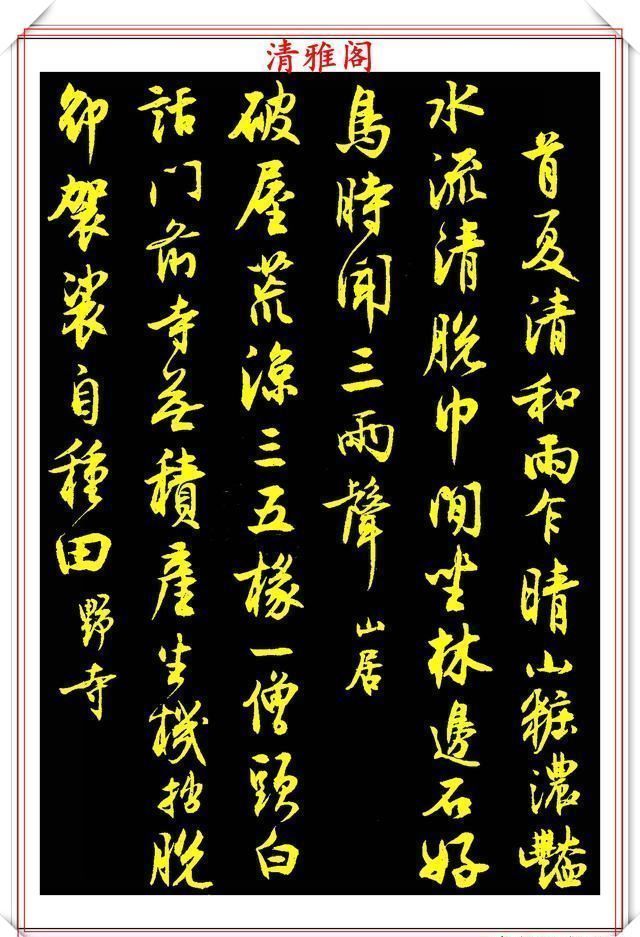 清雅阁
首夏清和雨乍晴山粧濃豔
水流清脫巾閒坐林邊石好
鳥時聞三兩聲 山居
破屋荒涼三五椽一僧頭白
話門前寺無積產生機拙脫
卻袈裟自種田 野寺